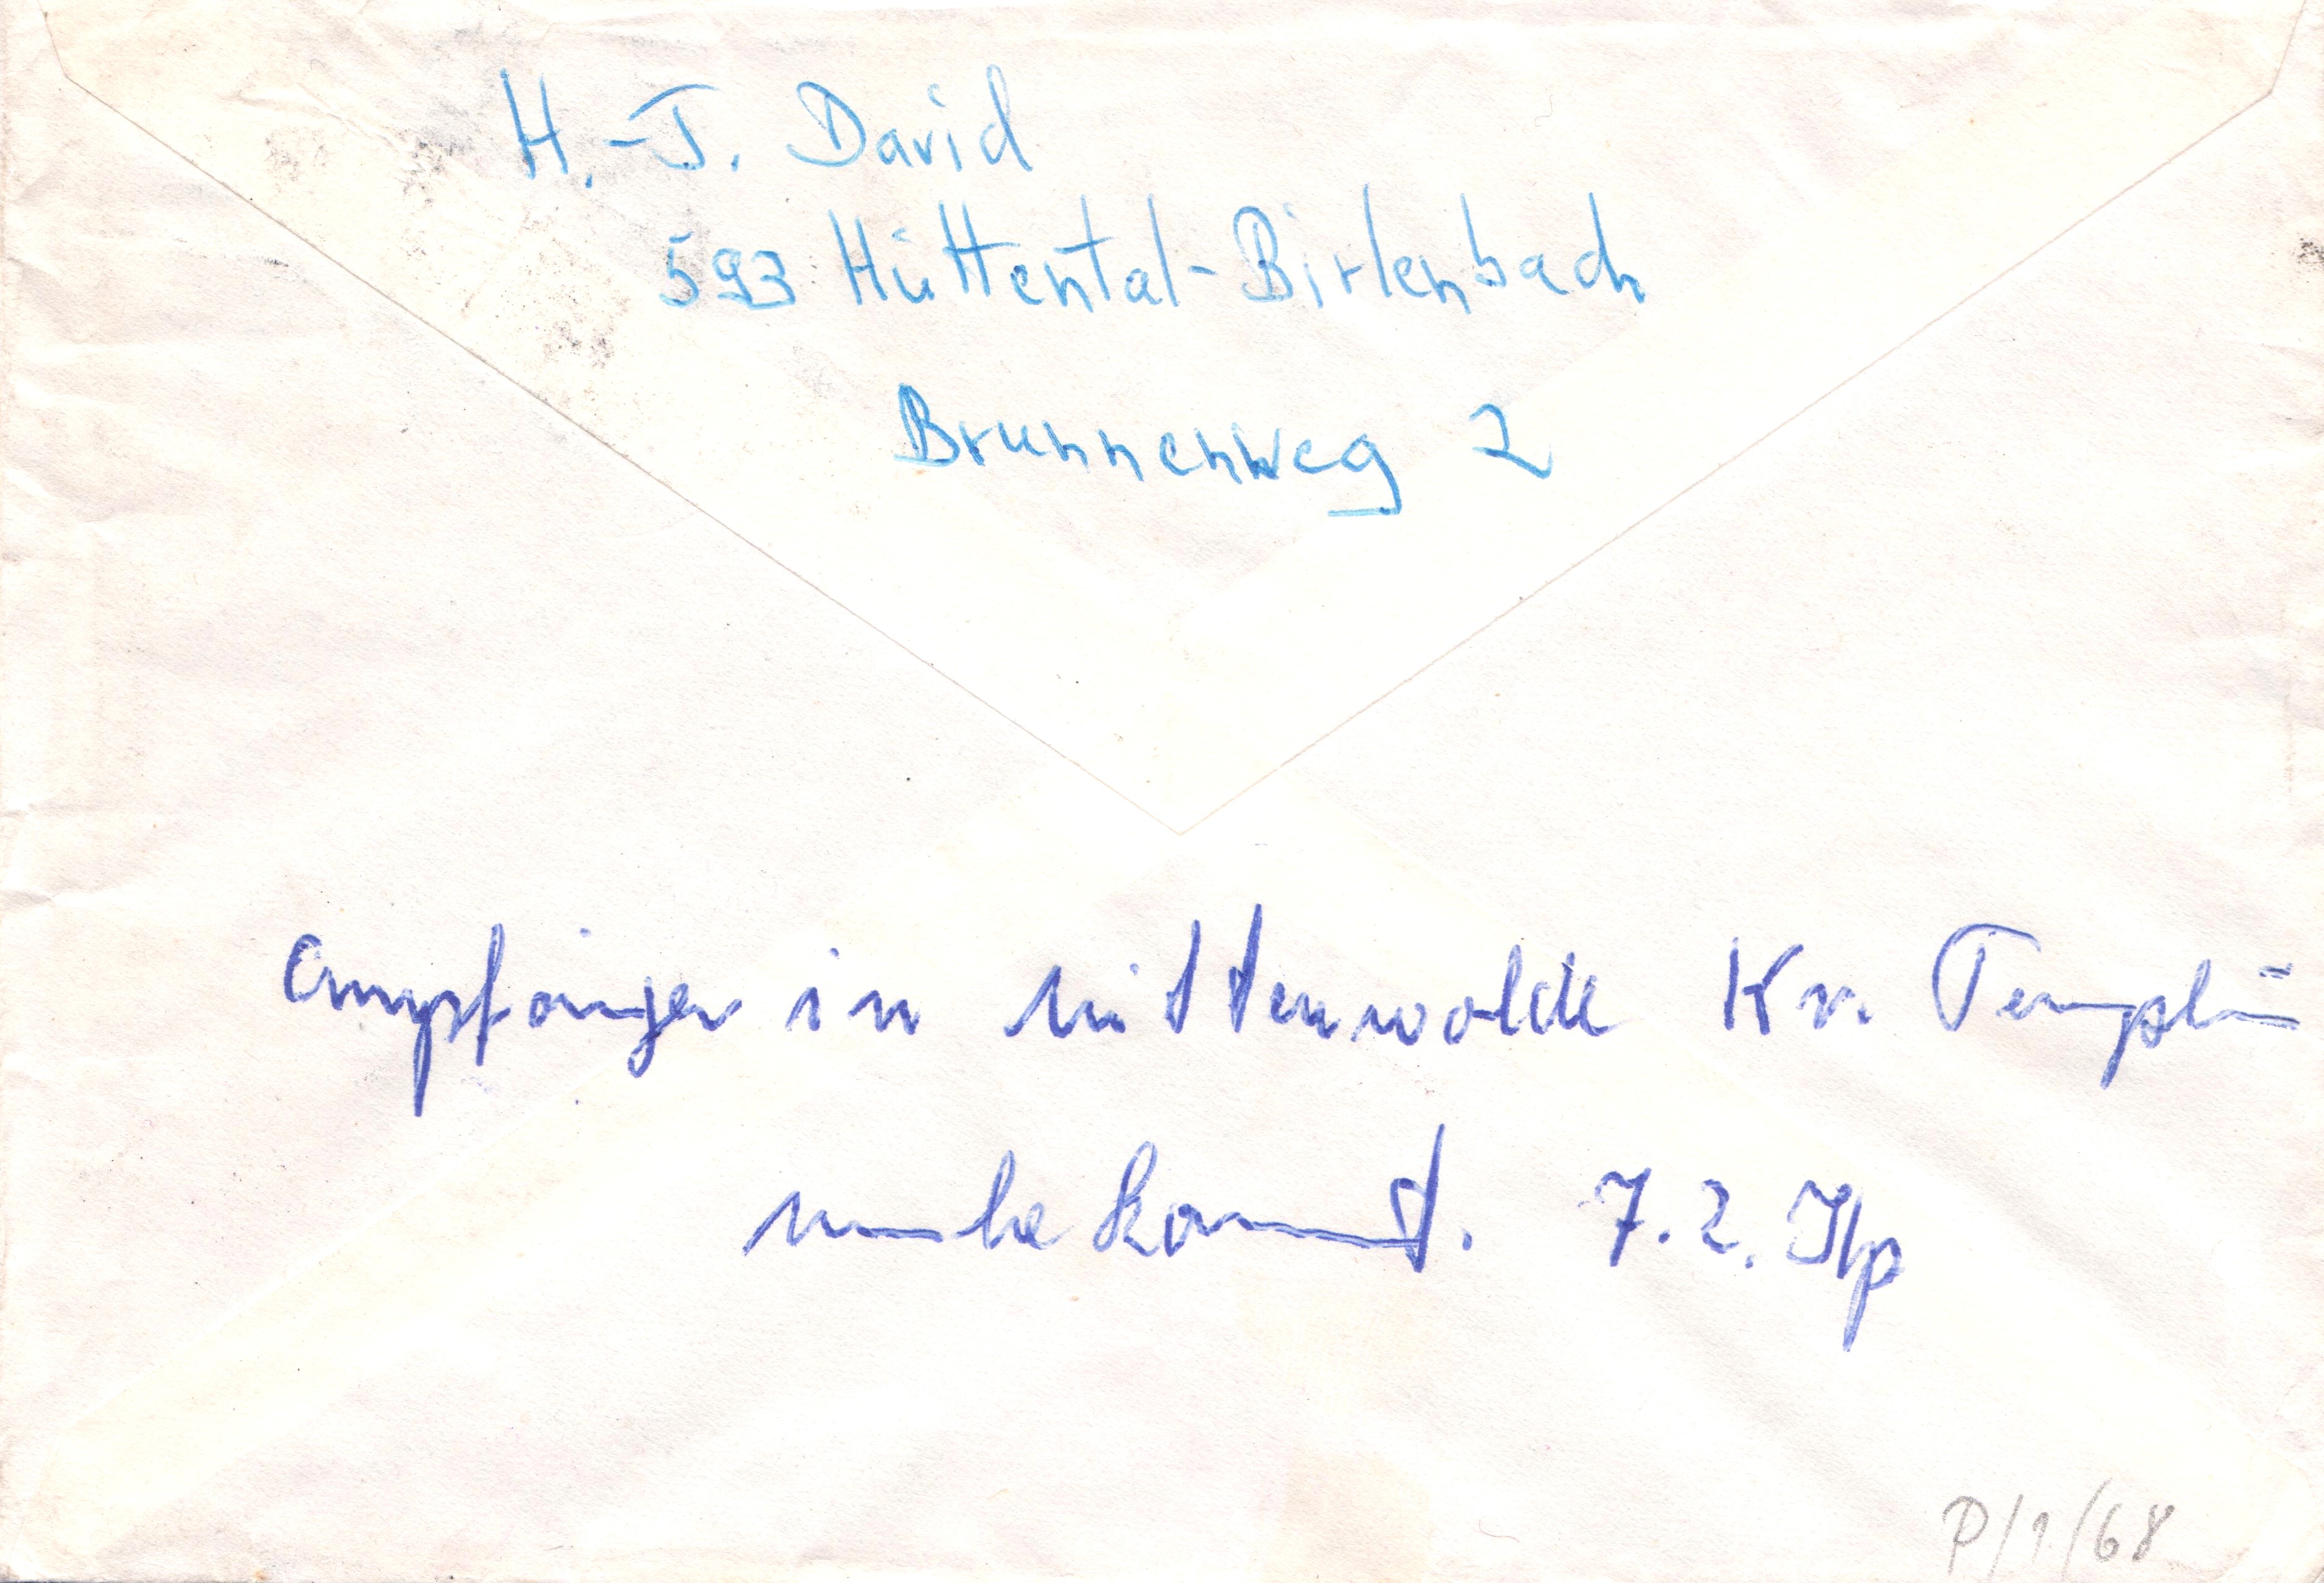 H.-J. David
593 Hüttental-Birlenbach
Brunnenweg 2
Empfänger in Mittenwalde Kr. Templin
unbekannt. 7.2.
P/1/68